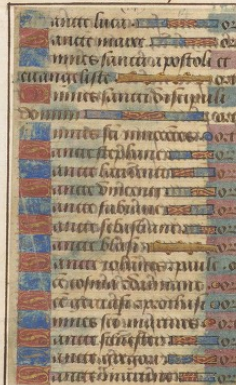 ancte luca or
ancte marce or
mnes sancti apostoli et
euangeliste or
mnes sancti discipuli
domini ort
mnes sci innocentes ort
ancte stephane or
ancte laurenti or
ancte vincenti or
ancte fabiane or
ancte sebastiane or
ancte blasi or
ancte iohannes paule or
cosma damiane or
prothasi or
mnes sci martires or
ancte siluester or
ancte gregori or
ancte martine or